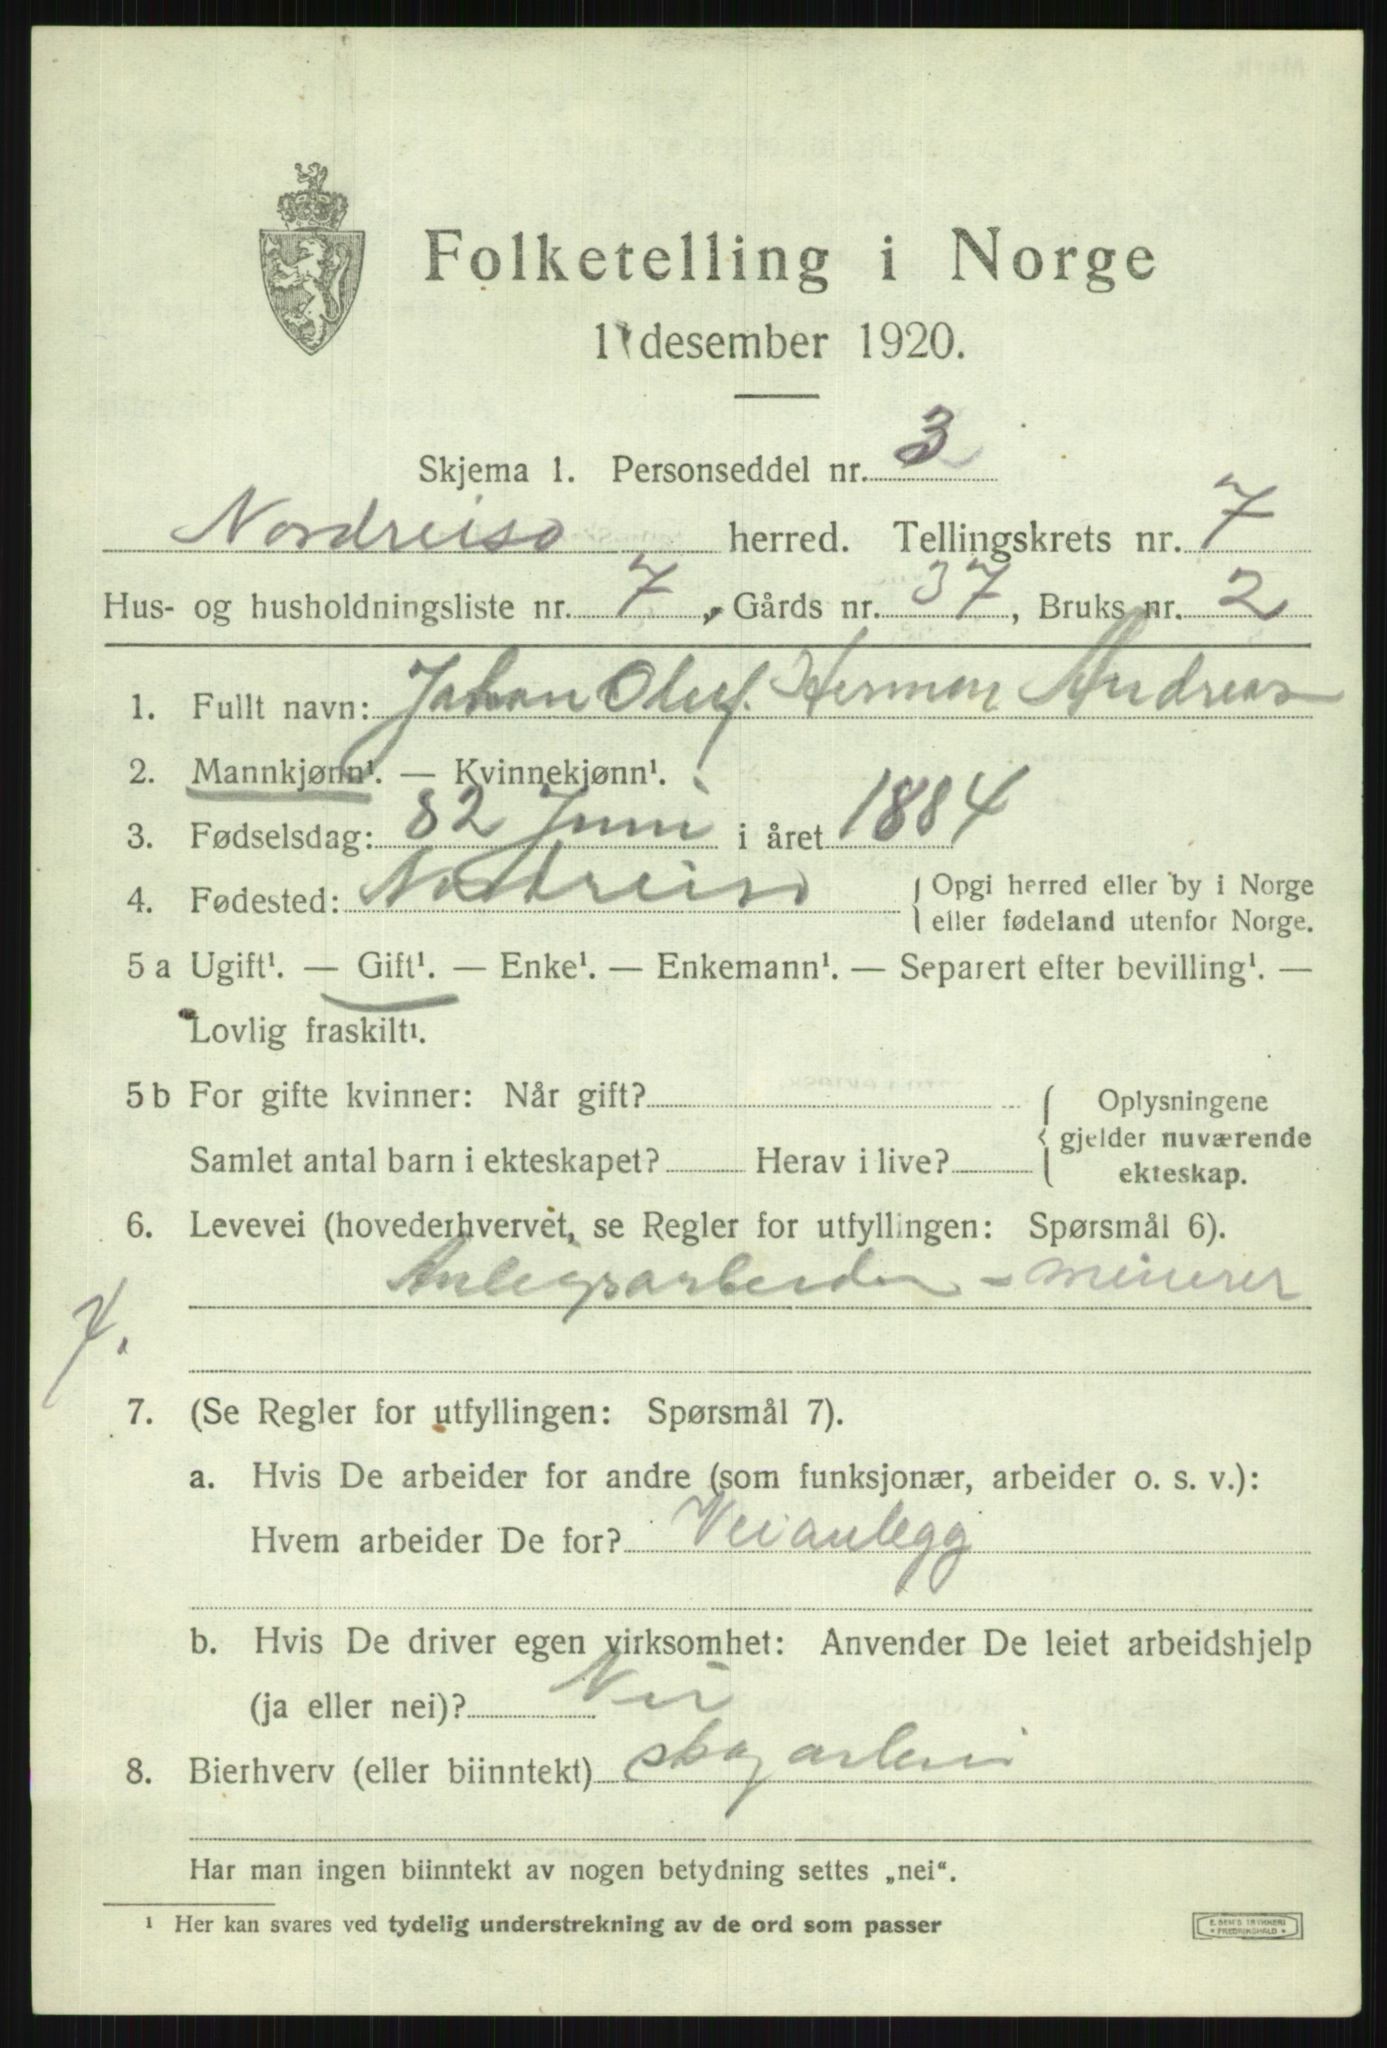 Folketelling i Norge
1 desember 1920.
Skjema 1. Personseddel nr. 3
Nordreisa herred. Tellingskrets nr. 7
Hus- og husholdningsliste nr. 7, Gårds nr. 37, Bruks nr. 2
1. Fullt navn: Johan Oluf. Herman Andreas
2. Mannkjønn¹. — Kvinnekjønn¹.
3. Fødselsdag: 82 Juni i året 1884
4. Fødested: Nordreisa { Opgi herred eller by i Norge
eller fødeland utenfor Norge.
5 a Ugift¹. — Gift¹. — Enke¹. — Enkemann¹. — Separert efter bevilling¹. —
Lovlig fraskilt¹.
5 b For gifte kvinner: Når gift? { Oplysningene
gjelder nuværende
Samlet antal barn i ekteskapet? Herav i live? ekteskap.
6. Levevei (hovederhvervet, se Regler for utfyllingen: Spørsmål 6).
Anlegsarbeider - minerer
7. (Se Regler for utfyllingen: Spørsmål 7).
a. Hvis De arbeider for andre (som funksjonær, arbeider o. s. v.):
Hvem arbeider De for? Veianlegg
b. Hvis De driver egen virksomhet: Anvender De leiet arbeidshjelp
(ja eller nei)? Nei
8. Bierhverv (eller biinntekt) skogarbeid
Har man ingen biinntekt av nogen betydning settes „nei“.
¹ Her kan svares ved tydelig understrekning av de ord som passer
E. SEM'S TRYKKERI
• FREDRIKSHALD •